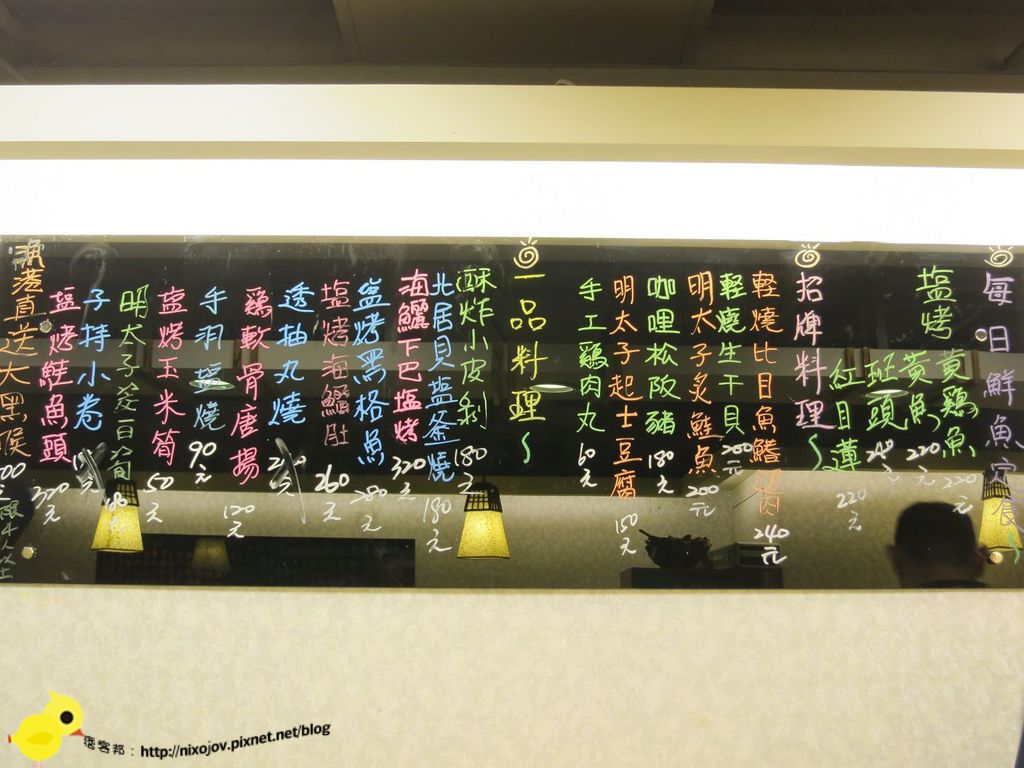 每日鮮魚定食
塩烤
黃鷄魚 220元
黃魚 220元
斑頭 240元
紅目蓮 220元
招牌料理
輕燒比目魚鰭 240元
輕燒生干貝 280元
明太子炙鮭魚 200元
咖哩松阪豬 180元
明太子起士豆腐 150元
手工鷄肉丸 60元
一品料理
酥炸小皮剝 180元
北居貝塩釜燒 180元
海鱺下巴塩烤 320元
塩烤黑格魚 280元
塩烤海鱺肚 260元
透抽丸燒
鷄軟骨唐揚 120元
手羽塩燒 90元
塩烤玉米筍 50元
明太子
子持小卷
塩烤鮭魚頭 320元
漁港直送大黑喉
痞客邦：http://nixojov.pixnet.net/blog